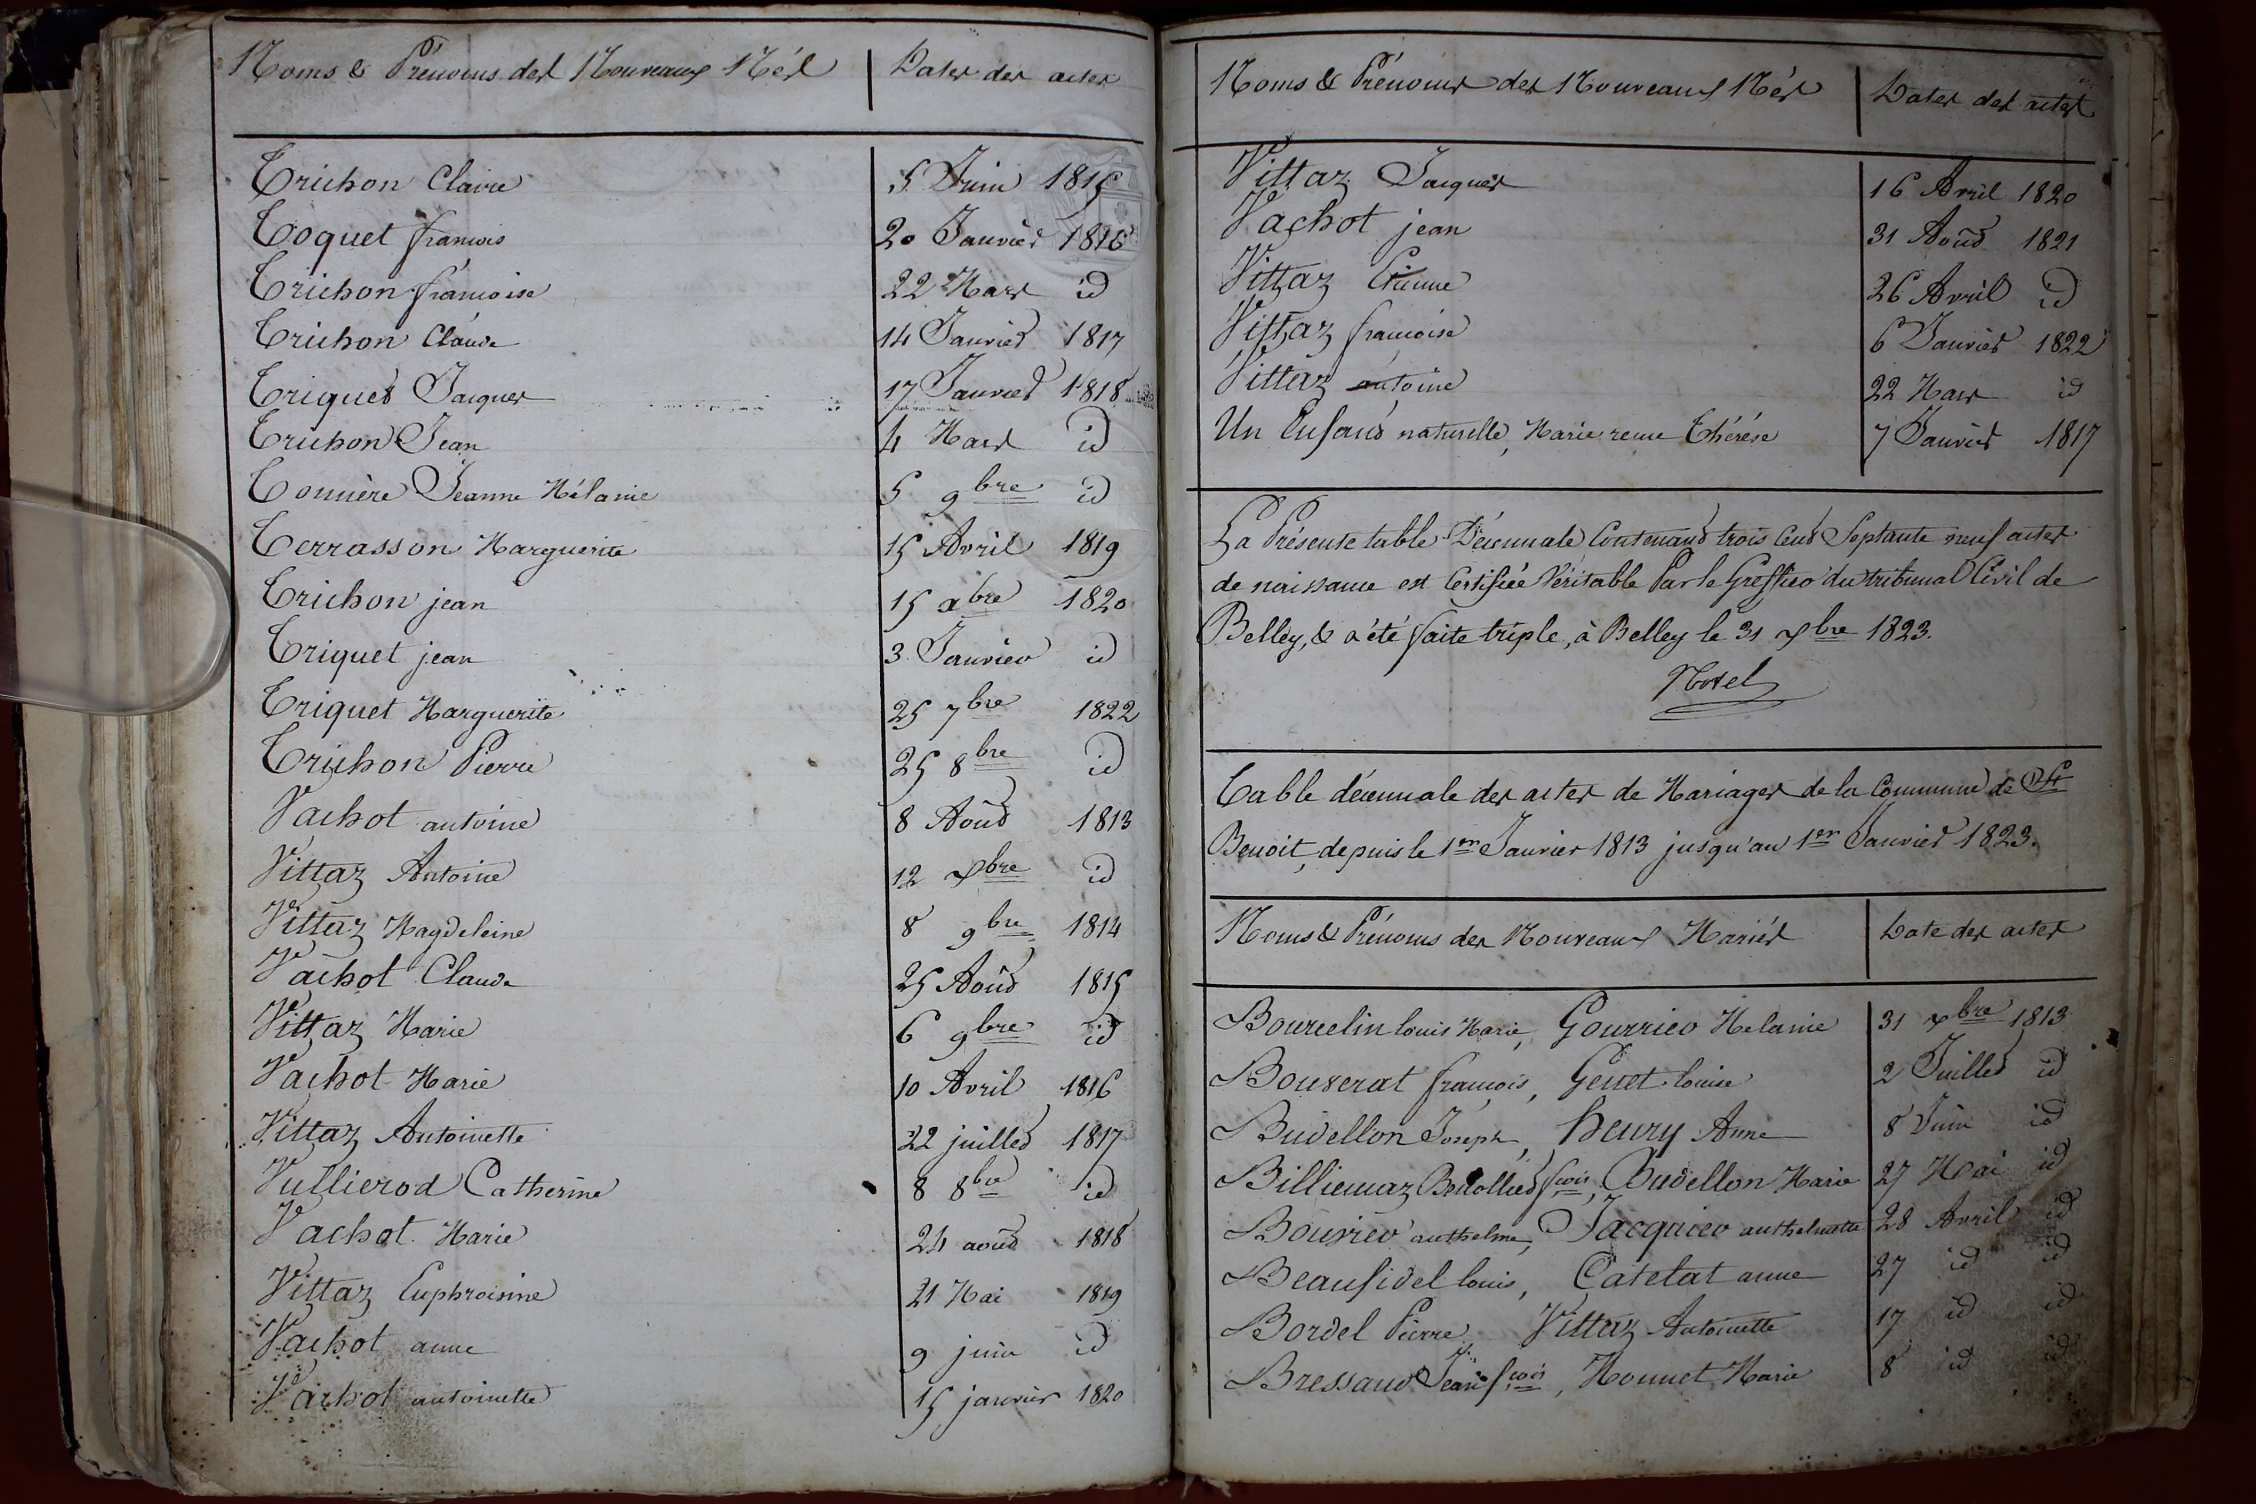 Noms & Prénoms des Nouveaux Nés Dates des actes
Trichon Claire 5 Juin 1815
Toquet francois 20 Janvier 1816
Trichon francoise 22 Mars id
Trichon Claude 14 Janvier 1817
Triquet Jacques 17 Janvier 1818
Trichon Jean 4 Mars id
Jeanne Mélanie 5 9bre id
Terrasson Marguerite 15 Avril 1819
Trichon jean 15 xbre 1820
Triquet jean 3 Janvier id
Triquet Marguerite 25 7bre 1822
Trichon Pierre 25 8bre id
Vachot antoine 8 Août 1813
Vittaz Antoine 12 xbre id
Vittaz Magdeleine 8 9bre 1814
Vachot Claude 25 Août 1815
Vittaz Marie 6 9bre id
Vachot Marie 10 Avril 1816
Vittaz Antoinette 22 juillet 1817
Vullierod Catherine 8 8bre id
Vachot Marie 24 août 1818
Vittaz Euphroisine 21 Mai 1819
Vachot anne 9 juin id
Vachot antoinette 15 janvier 1820
Noms & Prénoms des Nouveaux Nés Dates des actes
Vittaz Jacques 16 Avril 1820
Vachot jean 31 Août 1821
Vittaz Etienne 26 Avril id
Vittaz francoise 6 Janvier 1822
Vittaz antoine 22 Mars id
Un Enfant naturelle, Marie reine Thérése 7 Janvier 1817
La Présente table Décennale Contenant trois Cent Septante neuf actes
de naissance est Certifiée Véritable Par le Greffier du tribunal Civil de
Belley, & a été faite triple, à Belley le 31 xbre 1823.
Table décennale des actes de Mariages de la Commune de St
Benoit, depuis le 1er Janvier 1813 jusqu'au 1er Janvier 1823.
Noms & Prénoms des Nouveaux Mariés Date des actes
Bourcelin louis Marie, Gourrier Melanie 31 xbre 1813
Bouverat francois, Genet louise 2 Juillet id
Budellon Joseph, henry Anne 8 Juin id
Billiemaz fcois, Budellon Marie 27 Mai id
Bouvier anthelme, Jacquier anthelmette 28 Avril id
Beaufidel louis, Catelat anne 27 id id
Bordel Pierre Vittaz Antoinette 17 id id
Bressand Jean fcois, Monnet Marie 8 id id